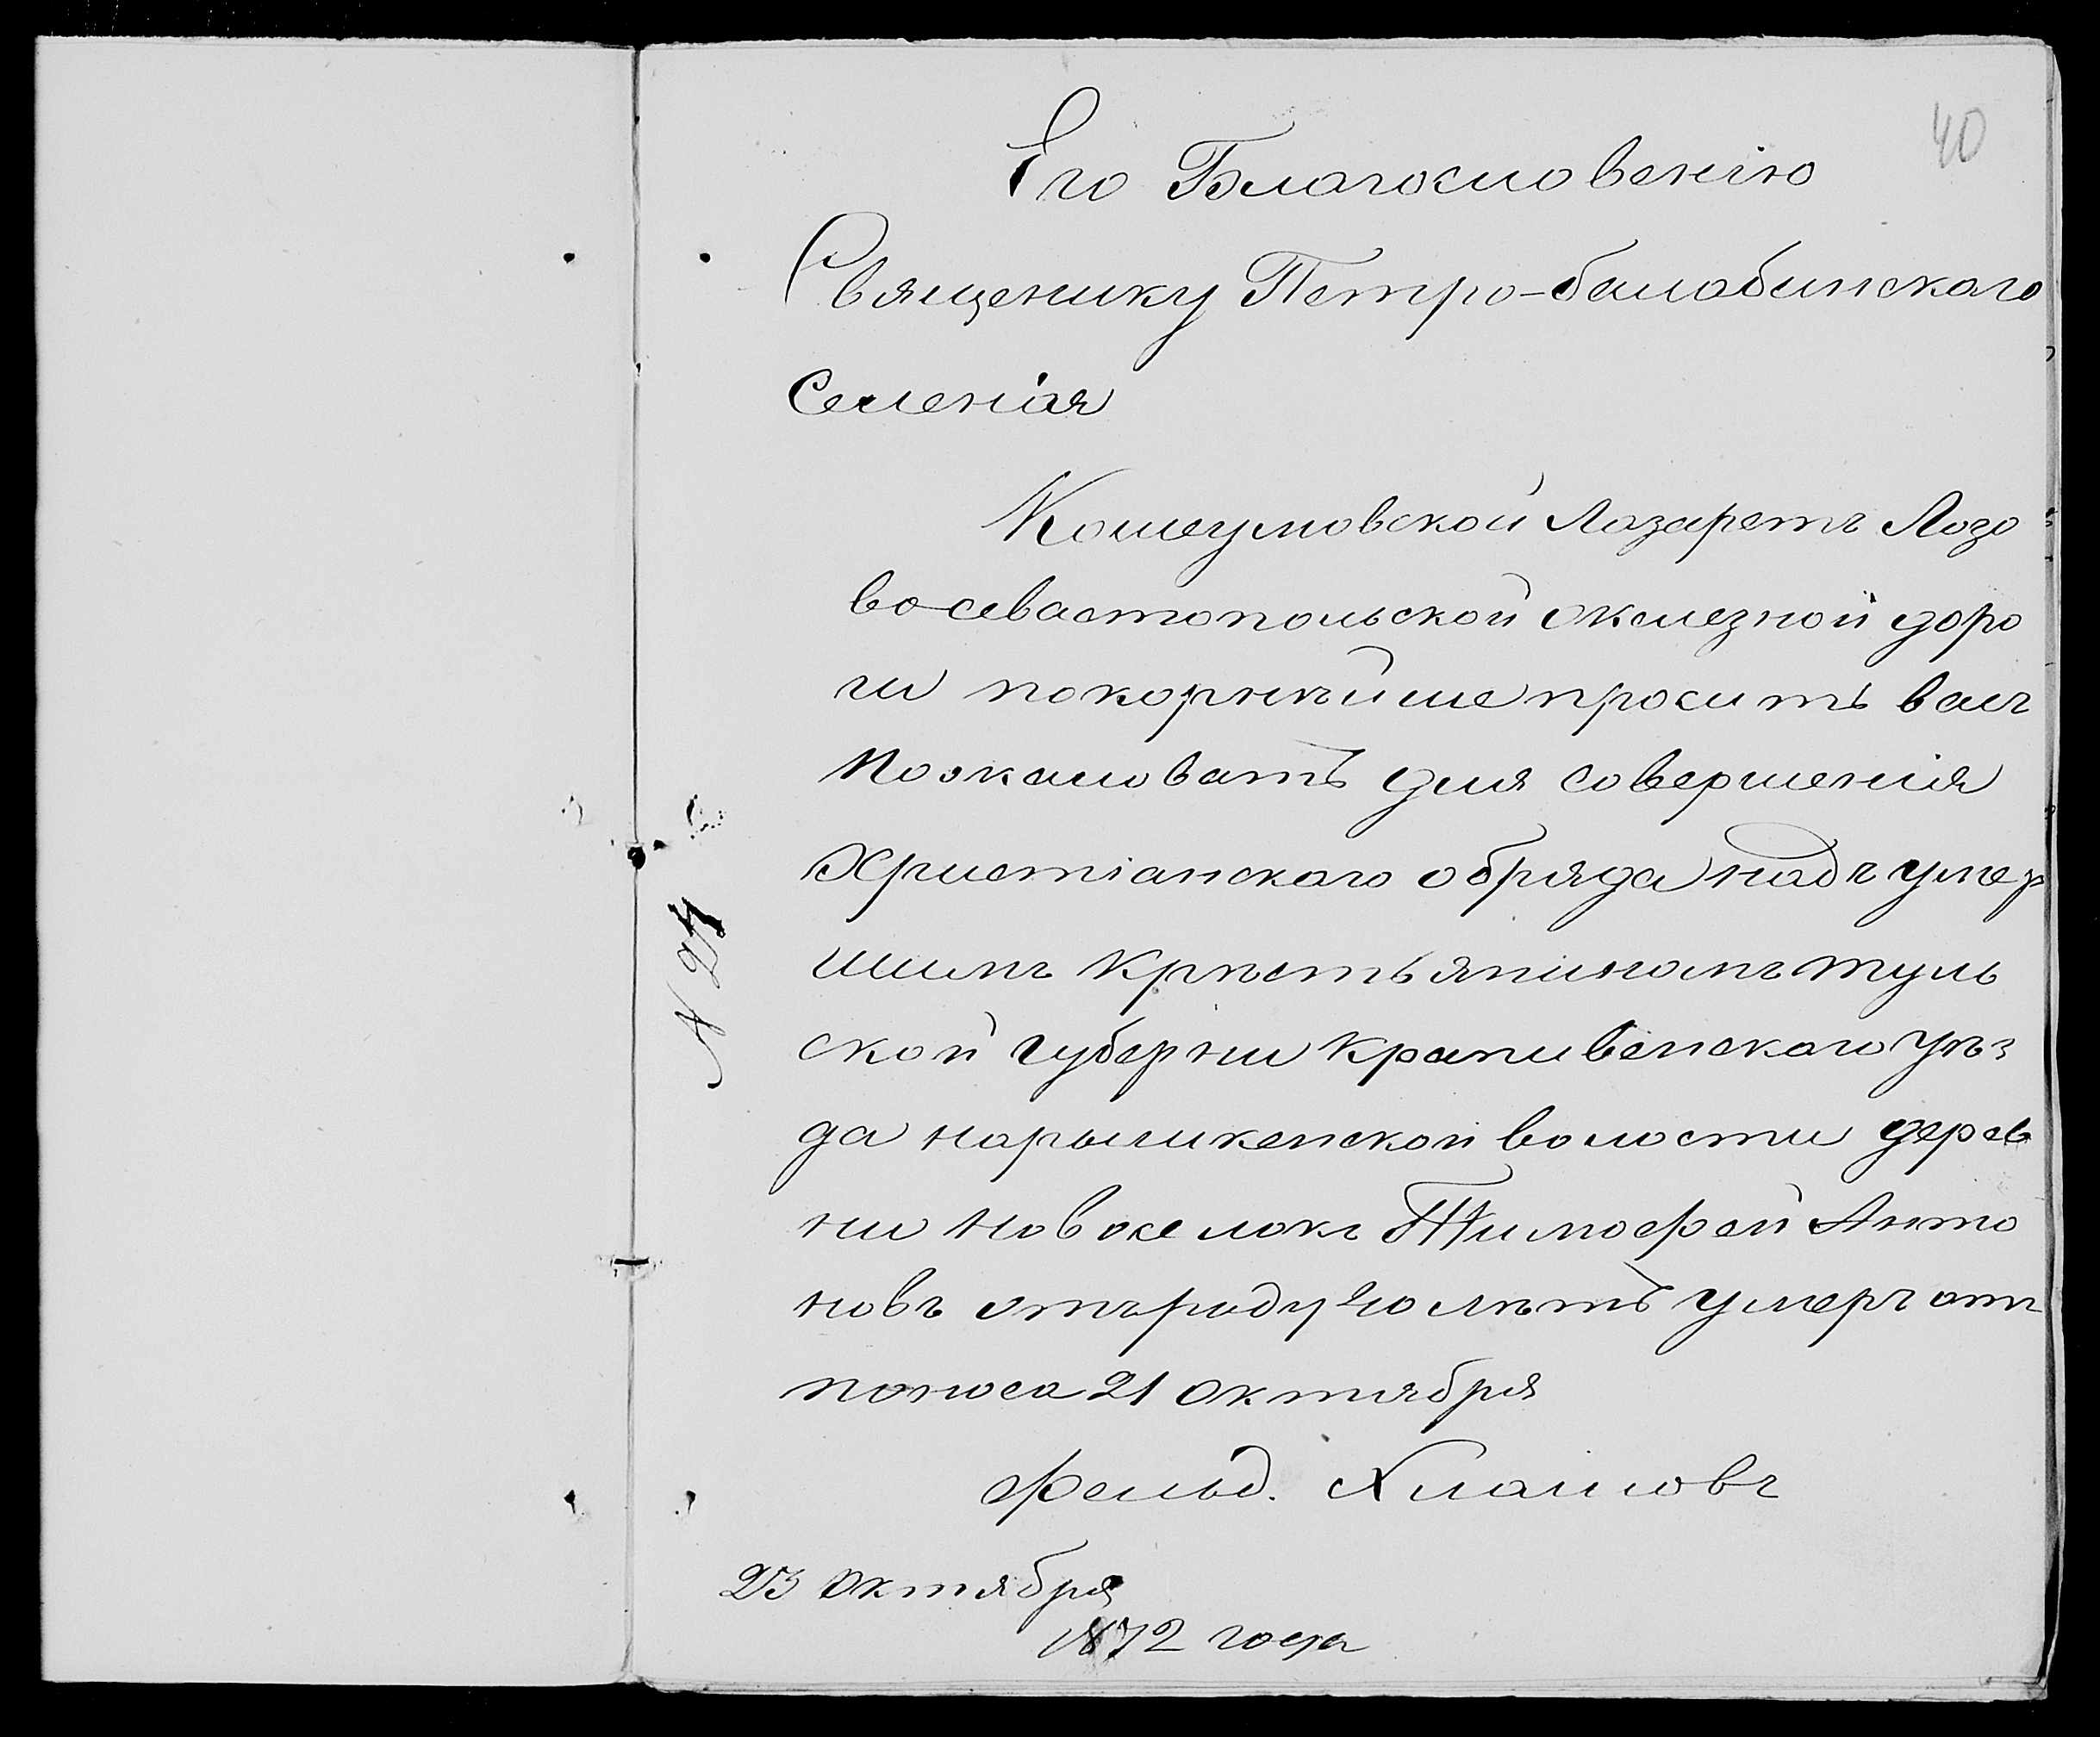 40
Его Благословенію
Священику Петро-балабинскаго
Селенія
Кошеумовской Лазаретъ Лозо
во-севастопольской железной доро
ги покорнѣйше проситъ васъ
Пожаловатъ для совершенія
Христіанскаго обряда надъ умер
шимъ крѣстьяниномъ туль
ской губерни крапивенскаго уѣз
да нарышкенской волости дерев
ни новоселокъ Тимофей Анто
новъ отъ роду 40 лѣтъ умеръ отъ
поноса 21 октября
Фельд.
23 октября
1872 года
N 24